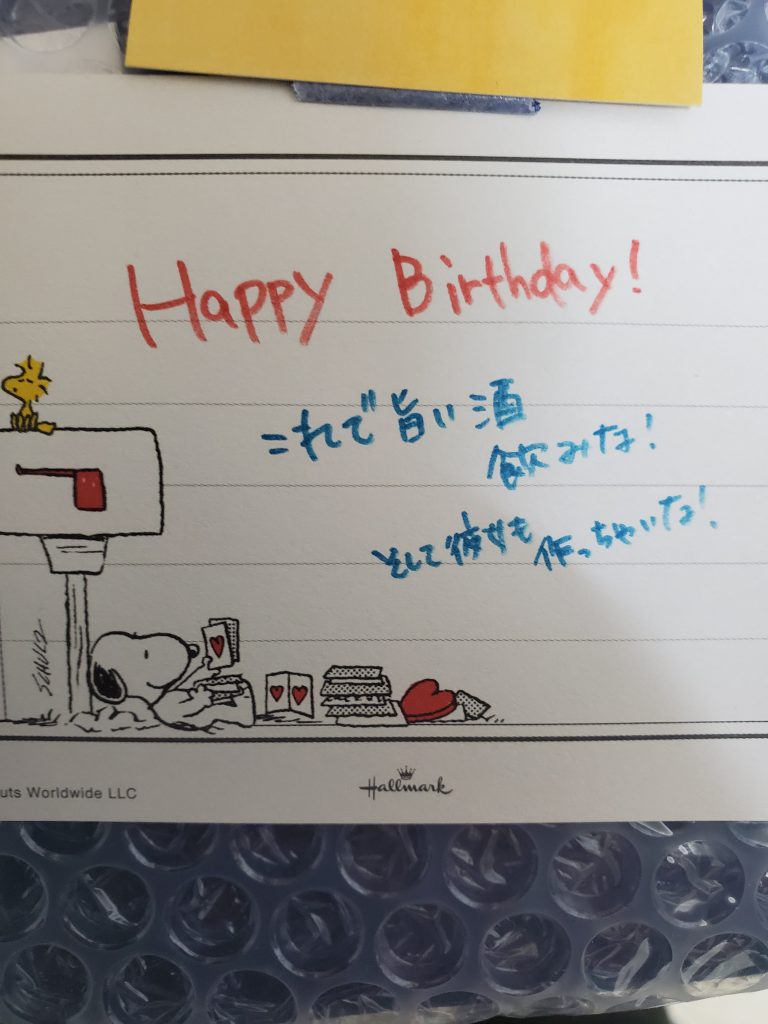 Happy Birthday!
これで旨い酒
飲みな!
そして彼女も
作っちゃいな!
SCHULZ
uts Worldwide LLC
Hallmark